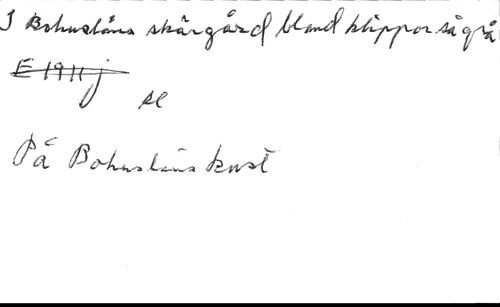 I Bohusläns skärgård bland klippor så grå
E 1911 j
se
På Bohusläns kust